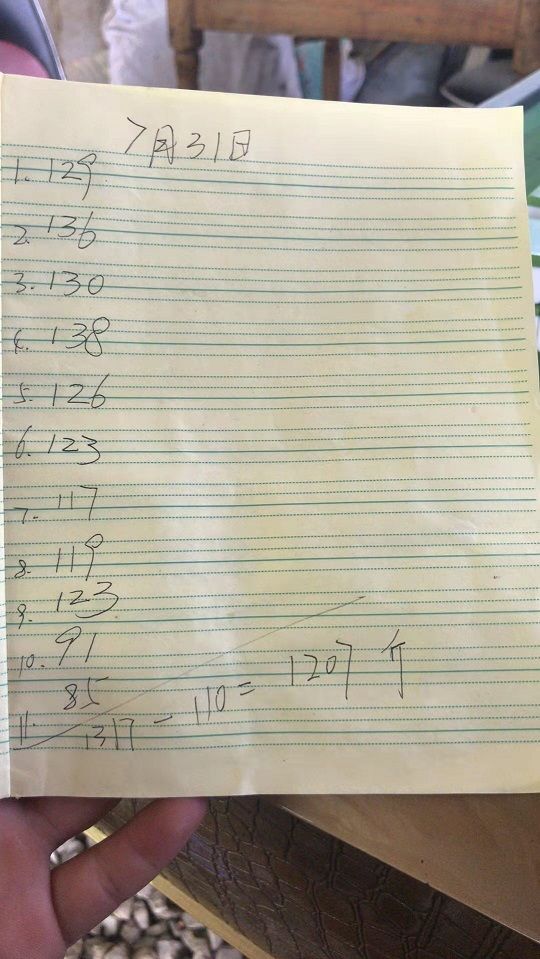 7月31日
1. 129
2. 136
3. 130
4. 138
5. 126
6. 123
7. 117
8. 119
9. 123
10. 91
11. 85
1317 - 110 = 1207 斤